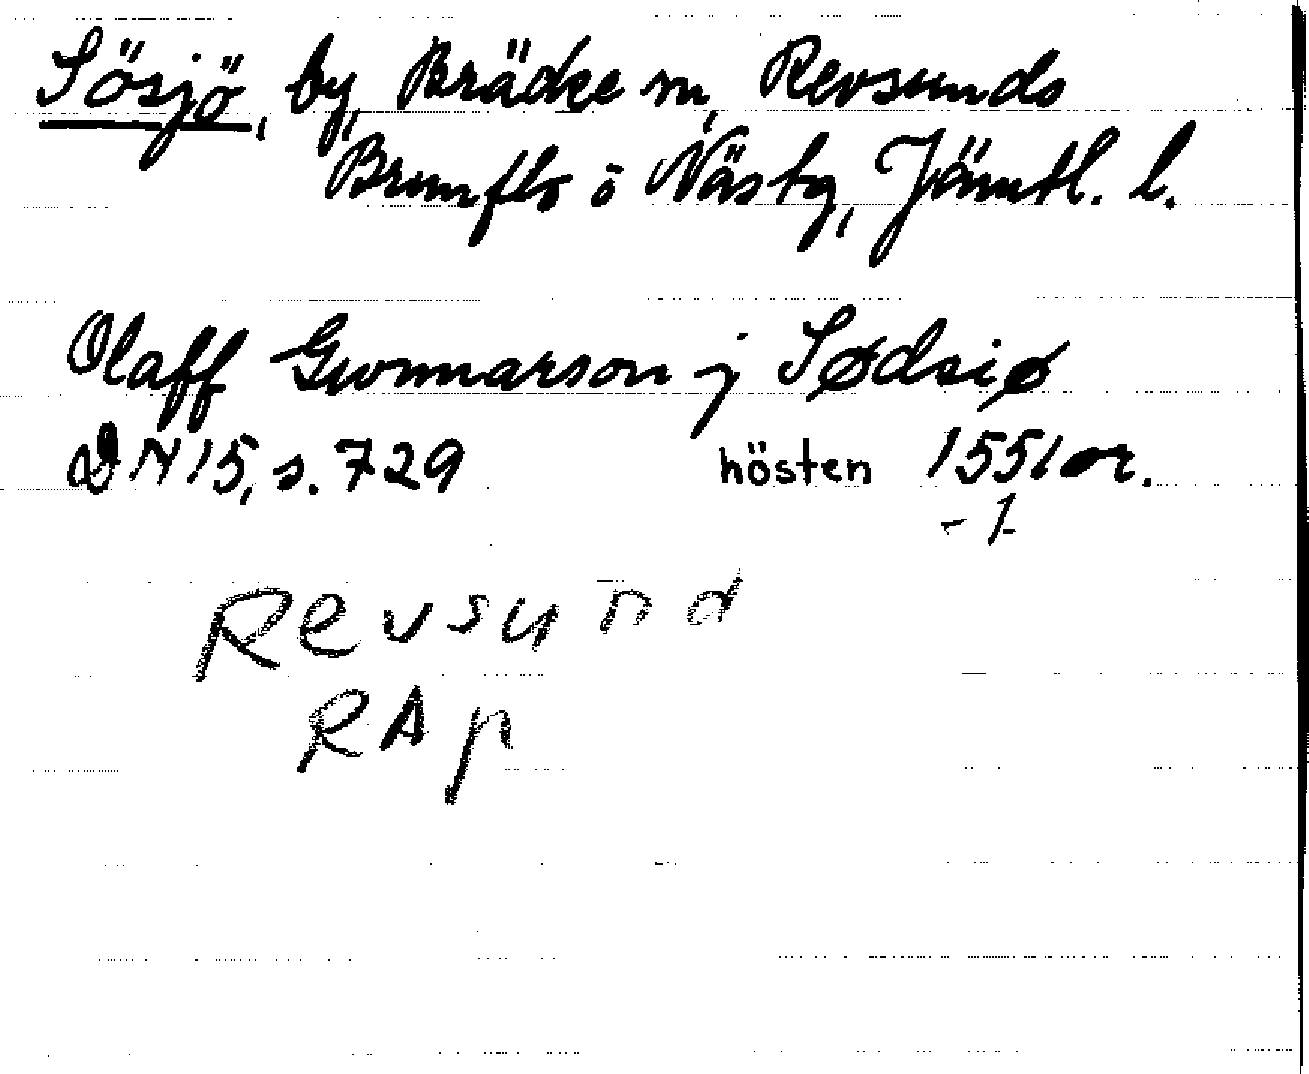 Sösjö, by, Bräcke sn, Revsunds
Brunflo o Näs tg, Jämtl. l.
Olaff Gunnarson j Sødsiø
DN 15, s. 729 hösten 1551 or.
- 1 -
Revsund
RAp